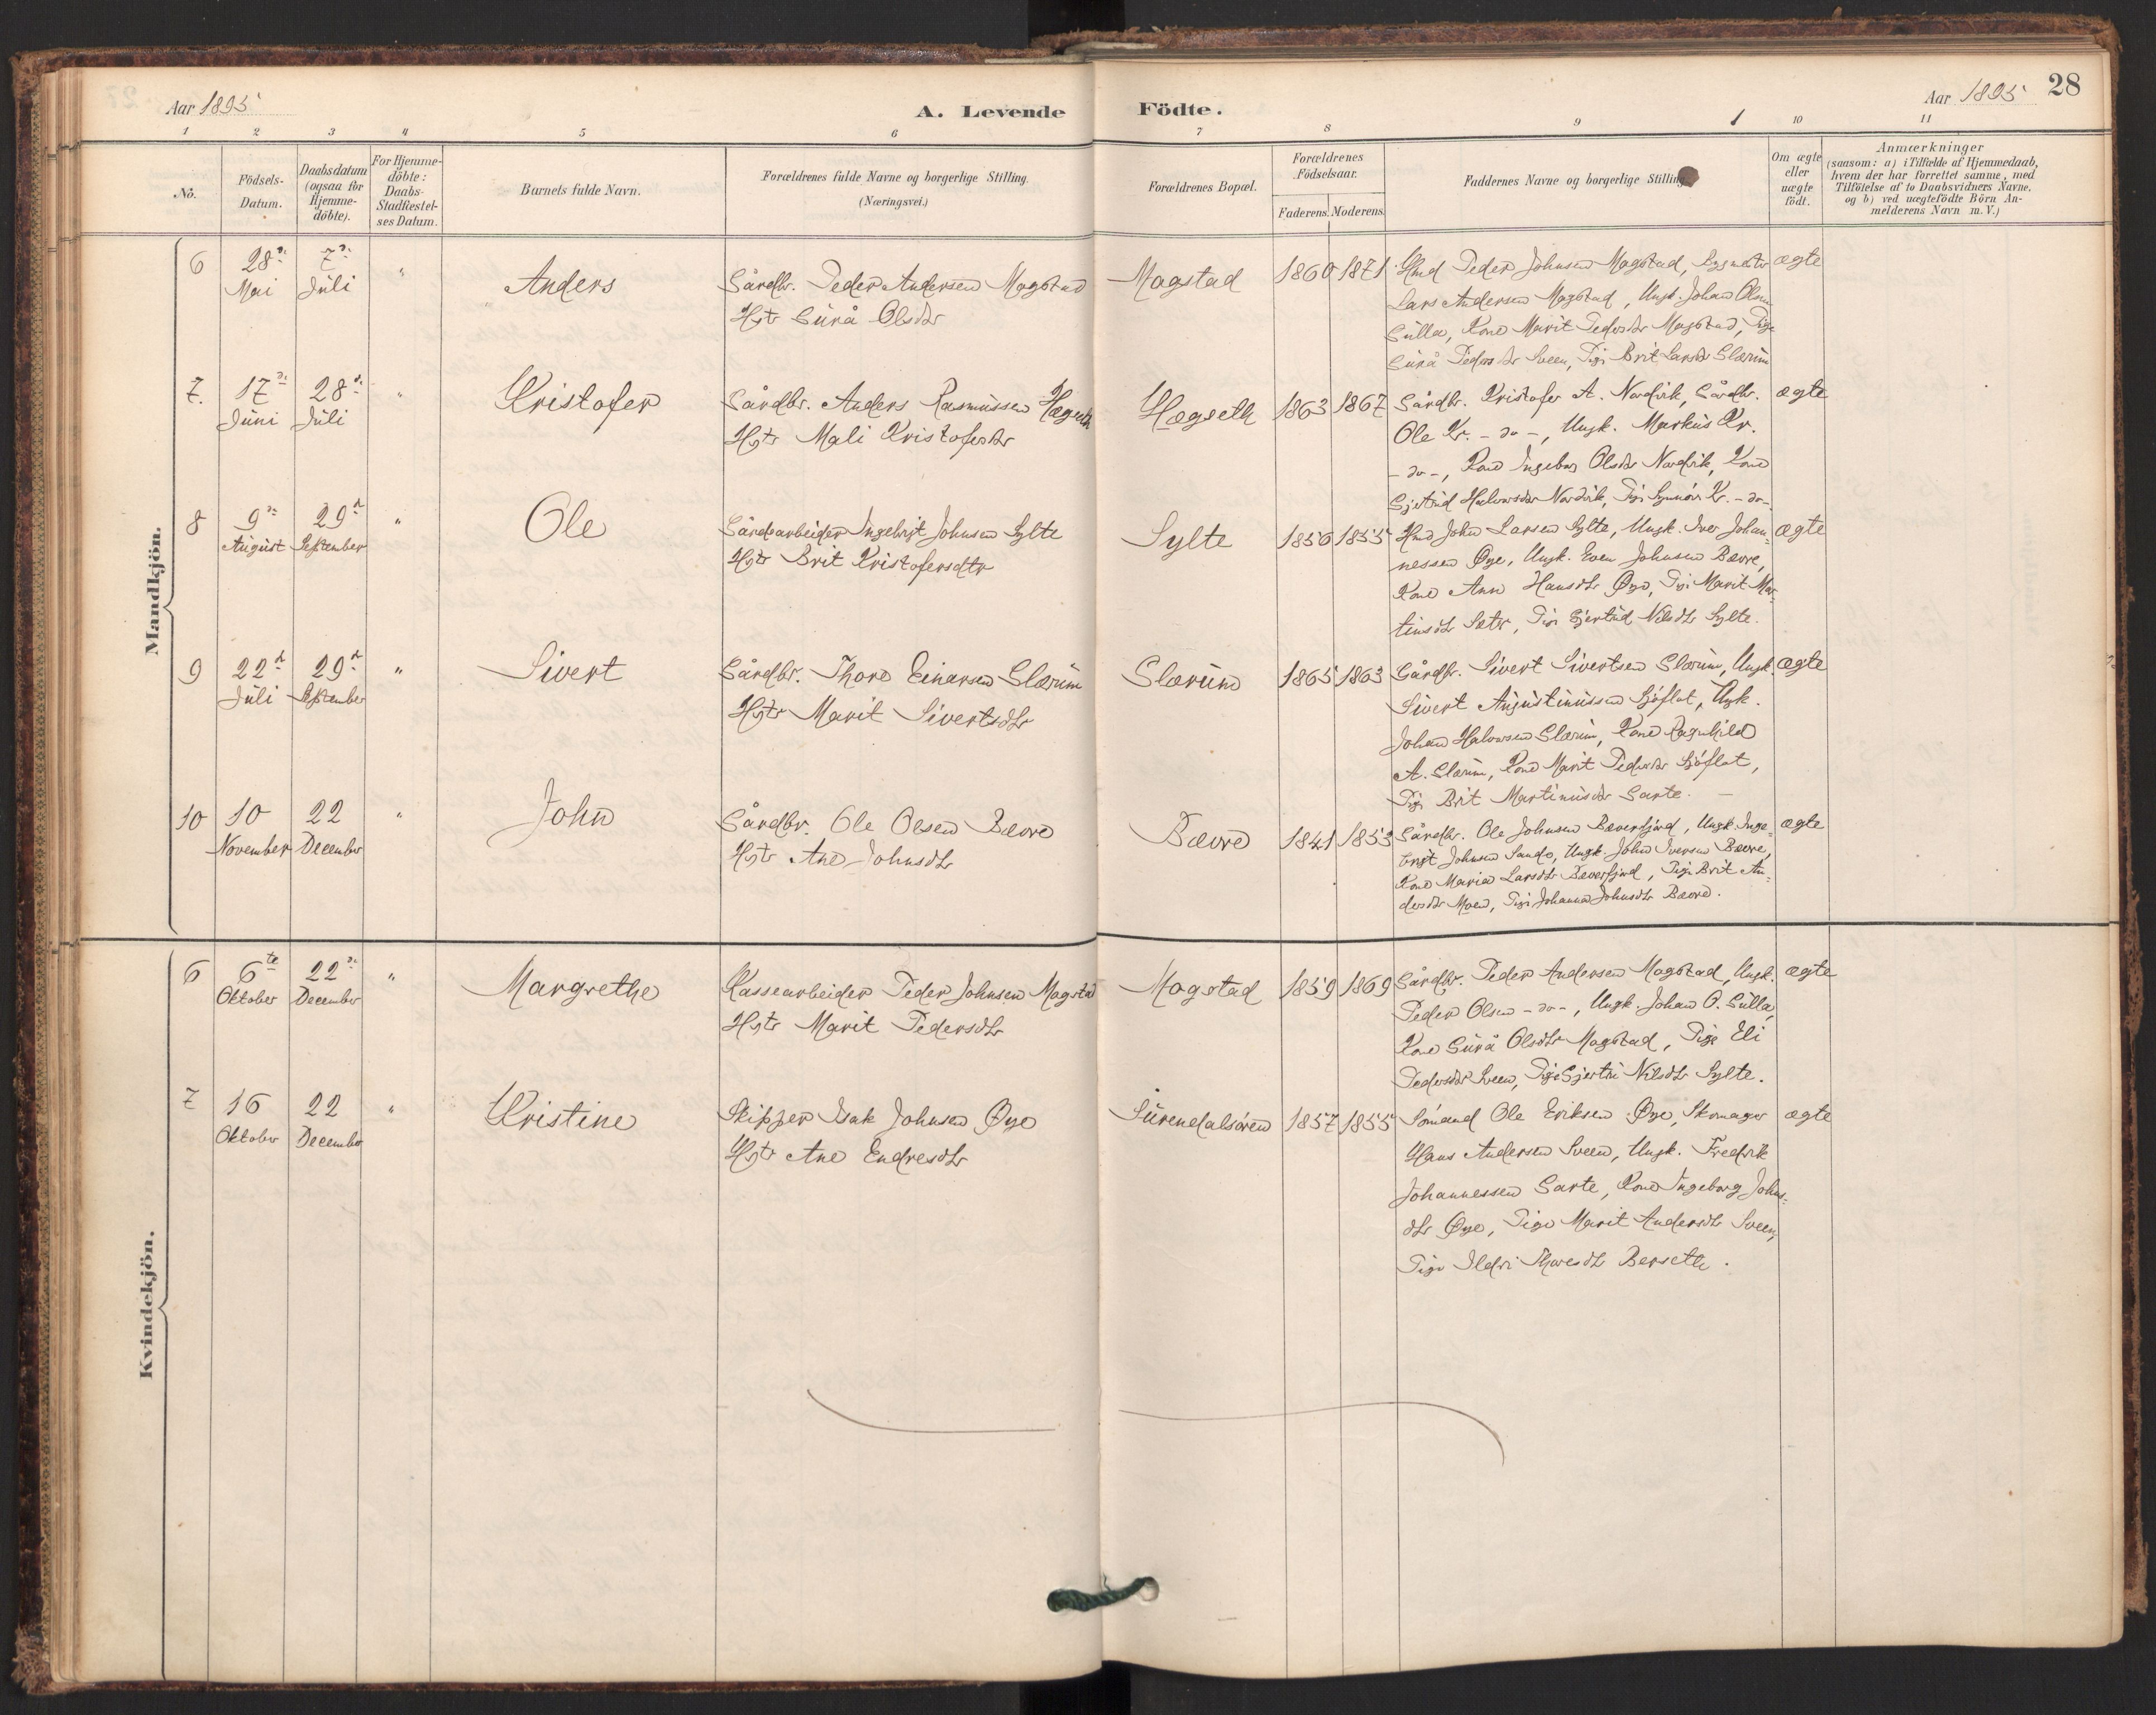 Aar 1895
A. Levende
Födte.
Aar 1895
28
1 2 3 4 5 6 7 8 9 10 11
No.
Födsels-Datum.
Daabsdatum (ogsaa för Hjemme-döbte).
For Hjemme-döbte: Daabs-Stadfæstel-ses Datum.
Barnets fulde Navn.
Forældrenes fulde Navne og borgerlige Stilling.
(Næringsvei.)
Forældrenes Bopæl.
Forældrenes Födselsaar.
Faderens. Moderens.
Faddernes Navne og borgerlige Stilling.
Om ægte eller uægte födt.
Anmærkninger
(saasom: a) i Tilfælde af Hjemmedaab,
hvem der har forrettet samme, med
Tilföielse af to Daabsvidners Navne.
og b) ved uægtefödte Börn An-
melderens Navn m. V.)
Mandkjön.
6 28de Mai 7de Juli " Anders
Gårdbr. Peder Andersen Magstad
Hstr Gurå Olsdtr
Magstad 1860 1871
Hmd Peder Johnsen Magstad,
Lars Andersen Magstad, Ungk. Johan Olsen
Gulla, Kone Marit Pedersdtr Magstad, Pige
Gurå Pedersdtr Sveen, Pige Brit Larsdtr Glærum
ægte
7. 17de Juni 28de Juli " Kristofer
Gårdbr. Anders Rasmussen Hægseth
Hstr Mali Kristofersdtr
Hægseth 1863 1867
Gårdbr. Kristofer A. Nordvik, Gårdbr.
Ole Kr. - do -, Ungk. Markus Kr.
- do -, Kone Ingebor Olsdtr Nordvik, Kone
Gjertrud Halvorsdtr Nordvik, Pige Synnöv Kr. - do -
ægte
8 9de August 29de September " Ole
Gårdarbeider Ingebrigt Johnsen Sylte
Hstr Brit Kristofersdtr
Sylte 1856 1855
Hmd John Larsen Sylte, Ungk. Iver Johan-
nessen Øye, Ungk. Even Johnsen Bævre,
Kone Ane Hansdtr Øye, Pige Marit Mar-
tinsdtr Sæter, Pige Gjertrud Nilsdtr Sylte.
ægte
9 22de Juli 29de September " Sivert
Gårdbr. Thore Einarsen Glærum
Hstr Marit Sivertsdtr
Glærum 1865 1863
Gårdbr. Sivert Sivertsen Glærum, Ungk.
Sivert Augustinussen Sjöflot, Ungk.
Johan Halvorsen Glærum, Kone Ragnhild
A. Glærum, Kone Marit Pedersdtr Sjöflot,
Pige Brit Martinusdtr Garte. -
ægte
10 10 November 22 December " John
Gårdbr. Ole Olsen Bævre
Hstr Ane Johnsdtr
Bævre 1841 1853
Gårdbr. Ole Johnsen Bæverfjord, Ungk. Inge-
brigt Johnsen Sande, Ungk. John Iversen Bævre,
Kone Maria Larsdtr Bæverfjord, Pige Brit An-
dersdtr Moen, Pige Johanna Johnsdtr Bævre.
ægte
Kvindekjön.
6 6te Oktober 22de December " Margrethe
Kassearbeider Peder Johnsen Magstad
Hstr Marit Pedersdtr
Magstad 1859 1869
Gårdbr. Peder Andersen Magstad, Ungk.
Peder Olsen - do -, Ungk. Johan O. Gulla,
Kone Gurå Olsdtr Magstad, Pige Eli
Pedersdtr Sveen, Pige Gjertru Nilsdtr Sylte.
ægte
7 16 Oktober 22 December " Kristine
Skipper Isak Johnsen Øye
Hstr Ane Endresdtr
Surendalsören 1857 1855
Sömand Ole Eriksen Øye, Skomager
Hans Andersen Sveen, Ungk. Fredrik
Johannessen Garte, Kone Ingeborg Johns-
dtr Øye, Pige Marit Andersdtr Sveen,
Pige Ildri Thoresdtr Bersetht.
ægte